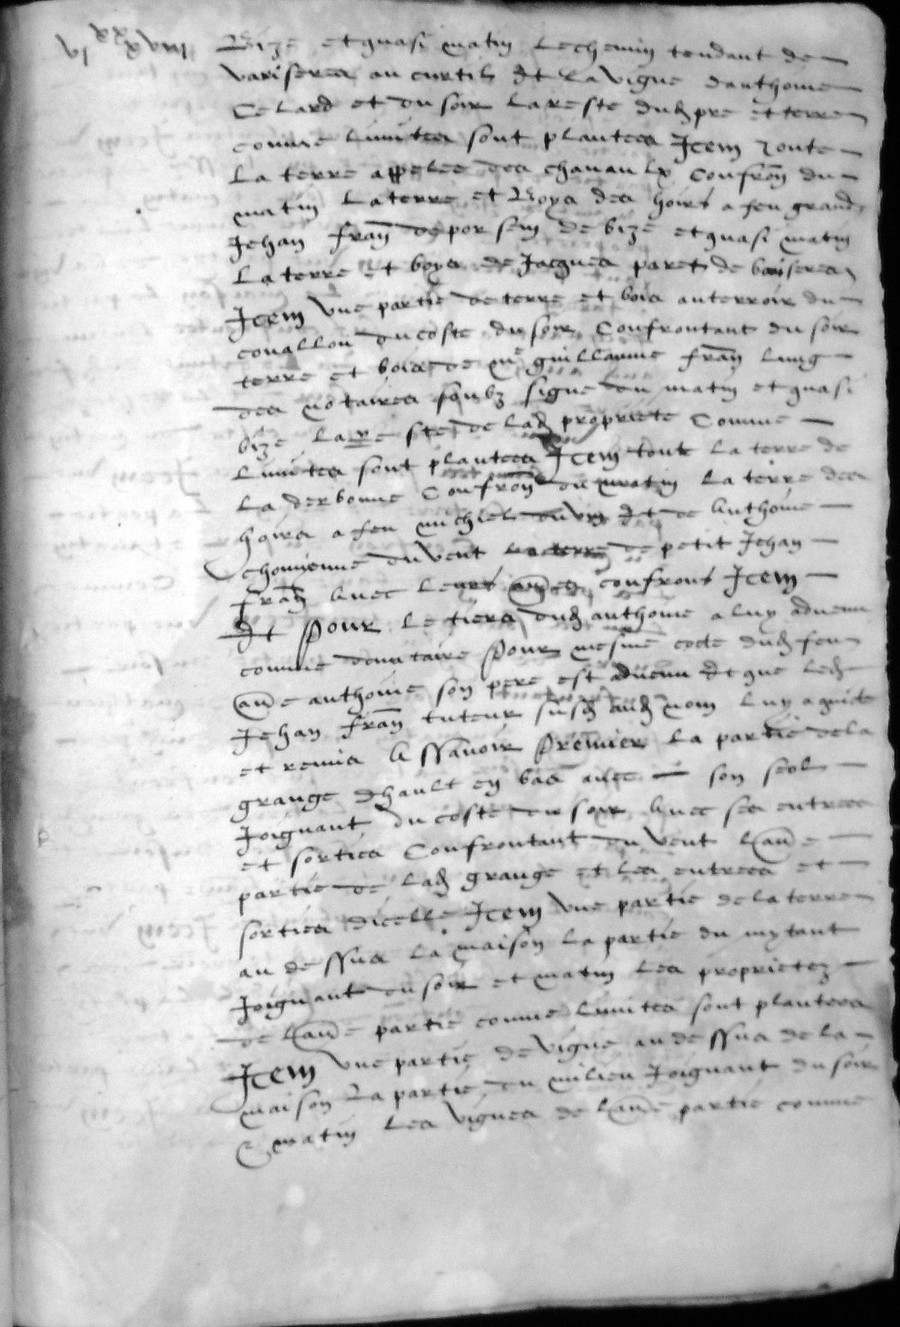 vi xx xviii
Bize et quasi matin le chemin tendant de
variseres au curtil et la vigne danthoine
Celard et du soir la reste dud pre et terre
comme limites sont plantees Jtem toute
la terre appelee des chanaulx Confron du
matin la terre et boys des hoirs a feu grand
Jehan fran de bize et quasi matin
la terre et boys de Jacques paret de variseres
Jtem vne partie de terre et bois au terroir du
couallou du coste du soir Confrontant du soir
terre et bois de me guillaume fran lung
des notaires soubz signe du matin et quasi
bize la reste de lad propriete Comme
limites sont plantees Jtem toute la terre de
la derbonne Confron du matin la terre des
hoirs a feu michiel dit de Anthoine
du vent la terre de petit Jehan
fran Avec leurs aues confrons Jtem
Et pour le tiers dud anthoine a luy aduenu
comme donataire pour mesme cocte dud feu
aue anthoine son pere est aduenu et que led
Jehan fran tuteur susd aud nom luy a quicte
et remis Assavoir Premier la partie de la
grange dhault en bas avec son seol
Joignant du coste du soir Avec ses entrees
et sorties Confrontant du vent laue
partie de lad grange et les entrees et
sorties dicelle Jtem vne partie de la terre
au dessus la maison la partie du mytant
Joignant du soir et matin les proprietez
de laue partie comme limites sont plantees
Jtem vne partie de vigne au dessus de la
maison La partie du milieu Joignant du soir
et matin les vignes de laue partie comme